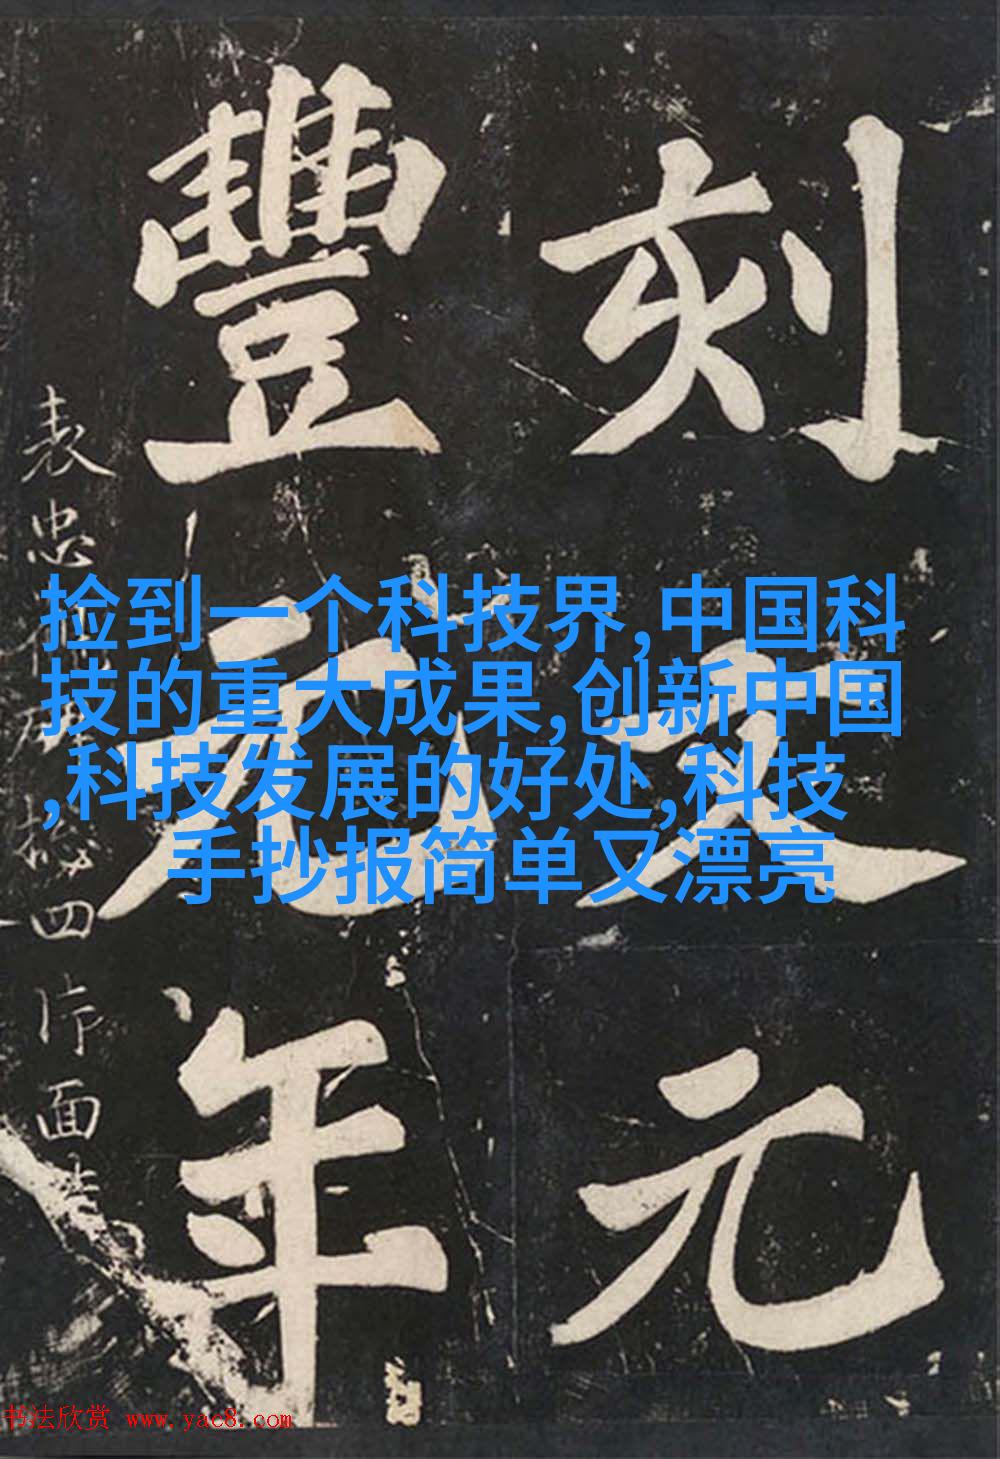 捡到一个科技界,中国科
技的重大成果,创新中国
,科技发展的好处,科技
手抄报简单又漂亮
刻文元
豐元年
表忠
四片面
书法欣赏 www.yac8.com